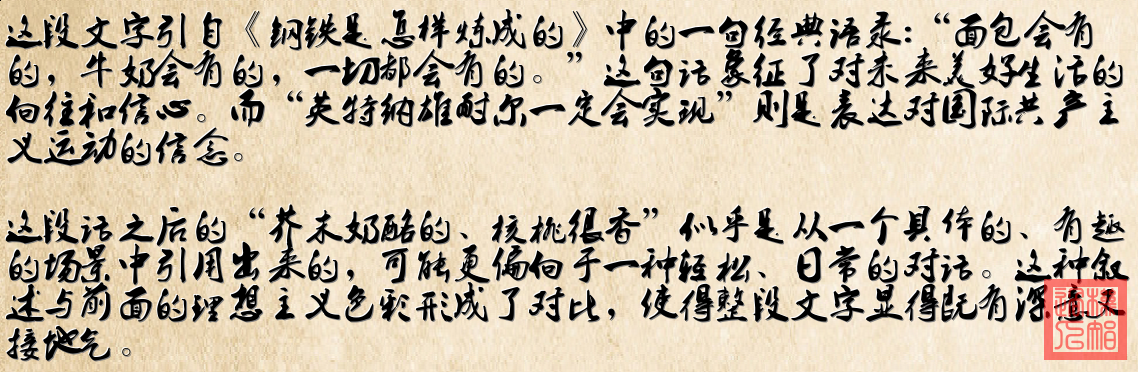 这段文字引自《钢铁是怎样炼成的》中的一句经典语录：“面包会有
的，牛奶会有的，一切都会有的。”这句话象征了对未来美好生活的
向往和信心。而“英特纳雄耐尔一定会实现”则是表达对国际共产主
义运动的信念。
这段话之后的“芥末奶酪的、核桃很香”似乎是从一个具体的、有趣
的场景中引用出来的，可能更偏向于一种轻松、日常的对话。这种叙
述与前面的理想主义色彩形成了对比，使得整段文字显得既有深意又
接地气。